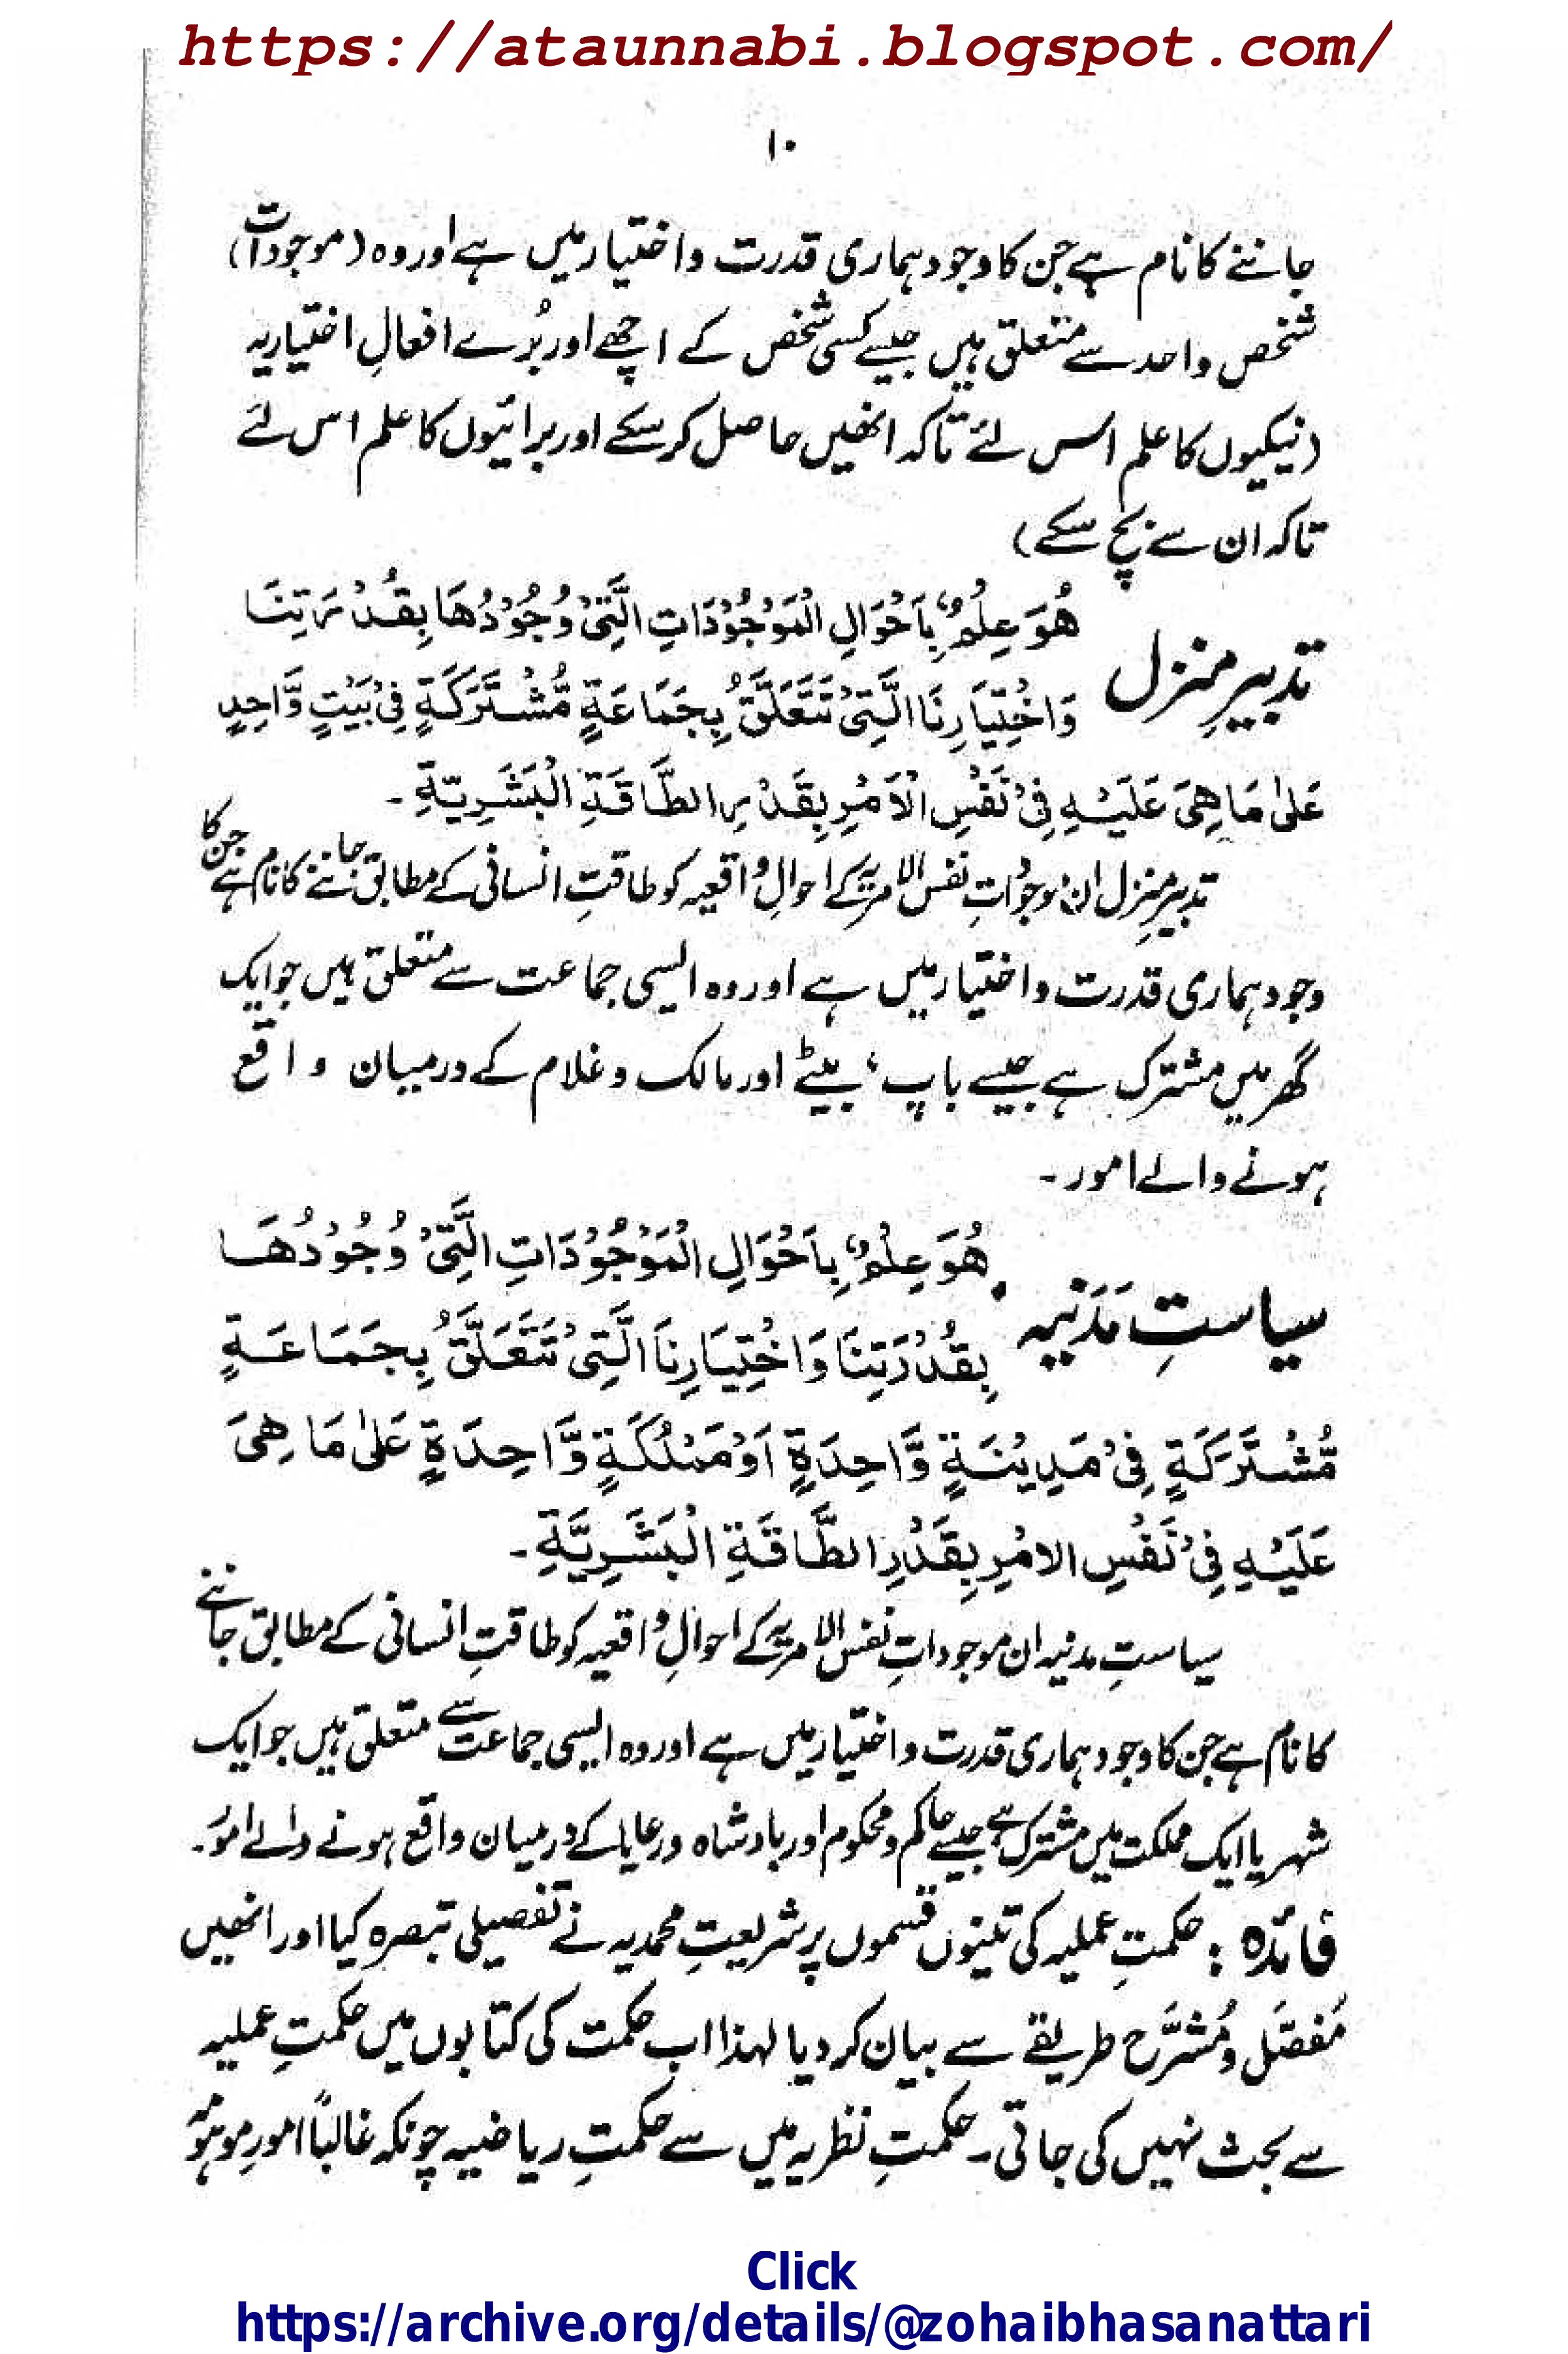 https://ataunnabi.blogspot.com/
۱۰
جاننے کا نام ہے جن کا وجود ہماری قدرت و اختیار میں ہے اور وہ (موجودات)
شخص واحد سے متعلق ہیں جیسے کسی شخص کے اچھے اور بُرے افعالِ اختیاریہ
(نیکیوں کا علم اس لئے تاکہ انھیں حاصل کرسکے اور برائیوں کا علم اس لئے
تاکہ ان سے بچ سکے)
تدبیرِ منزل هُوَ عِلْمٌ بِاَحْوَالِ الْمَوْجُوْدَاتِ الَّتِیْ وُجُوْدُهَا بِقُدْرَتِنَا
وَاخْتِيَارِنَا الَّتِیْ تَتَعَلَّقُ بِجَمَاعَةٍ مُّشْتَرَكَةٍ فِیْ بَيْتٍ وَّاحِدٍ
عَلٰى مَا هِیَ عَلَيْهِ فِیْ نَفْسِ الْاَمْرِ بِقَدْرِ الطَّاقَةِ الْبَشَرِيَّةِ ۔
تدبیرِ منزل ان موجوداتِ نفس الامریہ کے احوالِ واقعیہ کو طاقتِ انسانی کے مطابق جاننے کا نام ہے جن کا
وجود ہماری قدرت و اختیار میں ہے اور وہ ایسی جماعت سے متعلق ہیں جو ایک
گھر میں مشترک ہے جیسے باپ، بیٹے اور مالک و غلام کے درمیان واقع
ہونے والے امور ۔
سیاستِ مَدَنیہ هُوَ عِلْمٌ بِاَحْوَالِ الْمَوْجُوْدَاتِ الَّتِیْ وُجُوْدُهَا
بِقُدْرَتِنَا وَاخْتِيَارِنَا الَّتِیْ تَتَعَلَّقُ بِجَمَاعَةٍ
مُّشْتَرَكَةٍ فِیْ مَدِيْنَةٍ وَّاحِدَةٍ اَوْ مَمْلُكَةٍ وَّاحِدَةٍ عَلٰى مَا هِیَ
عَلَيْهِ فِیْ نَفْسِ الامْرِ بِقَدْرِ الطَّاقَةِ الْبَشَرِيَّةِ ۔
سیاستِ مدنیہ ان موجوداتِ نفس الامریہ کے احوالِ واقعیہ کو طاقتِ انسانی کے مطابق جاننے
کا نام ہے جن کا وجود ہماری قدرت و اختیار میں ہے اور وہ ایسی جماعت سے متعلق ہیں جو ایک
شہر یا ایک مملکت میں مشترک ہے جیسے حاکم و محکوم اور بادشاہ و رعایا کے درمیان واقع ہونے والے امور۔
فائدہ : حکمتِ عملیہ کی تینوں قسموں پر شریعتِ محمدیہ نے تفصیلی تبصرہ کیا اور انھیں
مُفصَّل و مُشرَّح طریقے سے بیان کر دیا لہذا اب حکمت کی کتابوں میں حکمتِ عملیہ
سے بحث نہیں کی جاتی۔ حکمتِ نظریہ میں سے حکمتِ ریاضیہ چونکہ غالباً امورِ موہومہ
Click
https://archive.org/details/@zohaibhasanattari